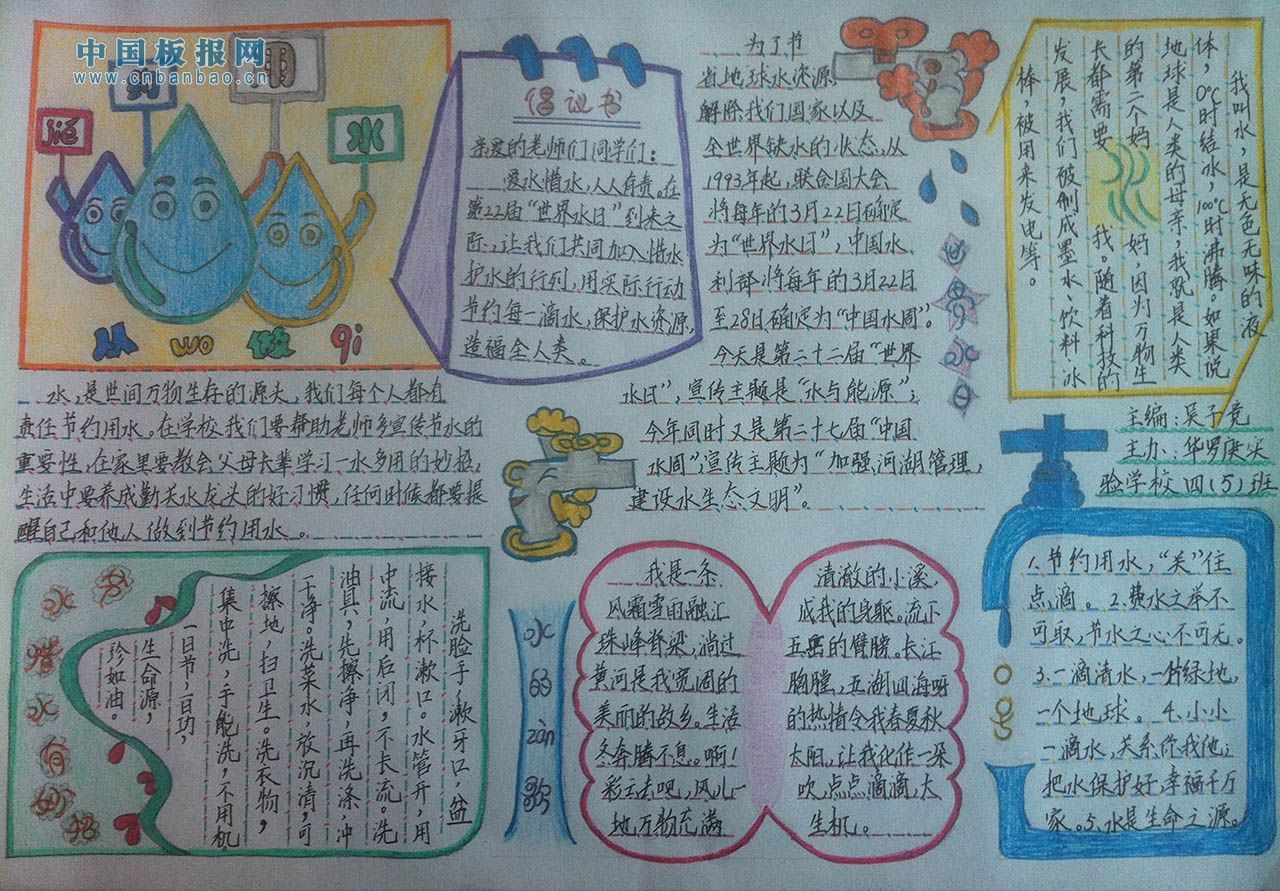 中国板报网
www.cnbanbao.cn
jié
约
用
水
从
wo
做
qi
倡议书
亲爱的老师们同学们：
爱水惜水，人人有责。在
第22届“世界水日”到来之
际，让我们共同加入惜水
护水的行列，用实际行动
节约每一滴水，保护水资源，
造福全人类。
为了节
省地球水资源，
解除我们国家以及
全世界缺水的状态，从
1993年起，联合国大会
将每年的3月22日确定
为“世界水日”，中国水
利部将每年的3月22日
至28日确定为“中国水周”。
今天是第二十二届“世界
水日”，宣传主题是“水与能源”；
今年同时又是第二十七届“中国
水周”，宣传主题为“加强河湖管理，
建设水生态文明”。
世
界
水
日
我叫水，是无色无味的液
体，0℃时结冰，100℃时沸腾。如果说
地球是人类的母亲，我就是人类
的第二个妈妈，因为万物生
长都需要我。随着科技的
发展，我们被制成墨水、饮料、冰
棒，被用来发电等。
主编：吴子竞
主办：华罗庚实
验学校四（5）班
水，是世间万物生存的源头，我们每个人都有
责任节约用水。在学校我们要帮助老师多宣传节水的
重要性，在家里要教会父母长辈学习一水多用的妙招，
生活中要养成勤关水龙头的好习惯，任何时候都要提
醒自己和他人做到节约用水。
节
水
惜
水
有
妙
招
洗脸手，漱牙口，盆
接水，杯漱口。水管开，用
中流，用后闭，不长流。洗
油具，先擦净，再洗涤，冲
干净。洗菜水，放沉清，可
擦地，扫卫生。洗衣物，
集中洗，手能洗，不用机。
一日节，一日功，
生命源，
珍如油。
水
的
zàn
歌
我是一条
风霜雪雨融汇
珠峰脊梁，淌过
黄河是我宽阔的
美丽的故乡。生活
冬奔腾不息。啊！
彩云去吧，风儿一
地，万物充满
清澈的小溪，
成我的身躯。流下
的臂膀。长江
胸膛，五湖四海呀
的热情令我春夏秋
太阳，让我化作一朵
吹，点点滴滴，大
生机。
口
号
1.节约用水，“关”住
点滴。2.费水之举不
可取，节水之心不可无。
3.一滴清水，一片绿地，
一个地球。4.小小
一滴水，关系你我他；
把水保护好，幸福千万
家。5.水是生命之源。